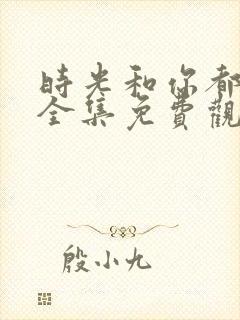 時光和你都
全集免費觀
殷小九